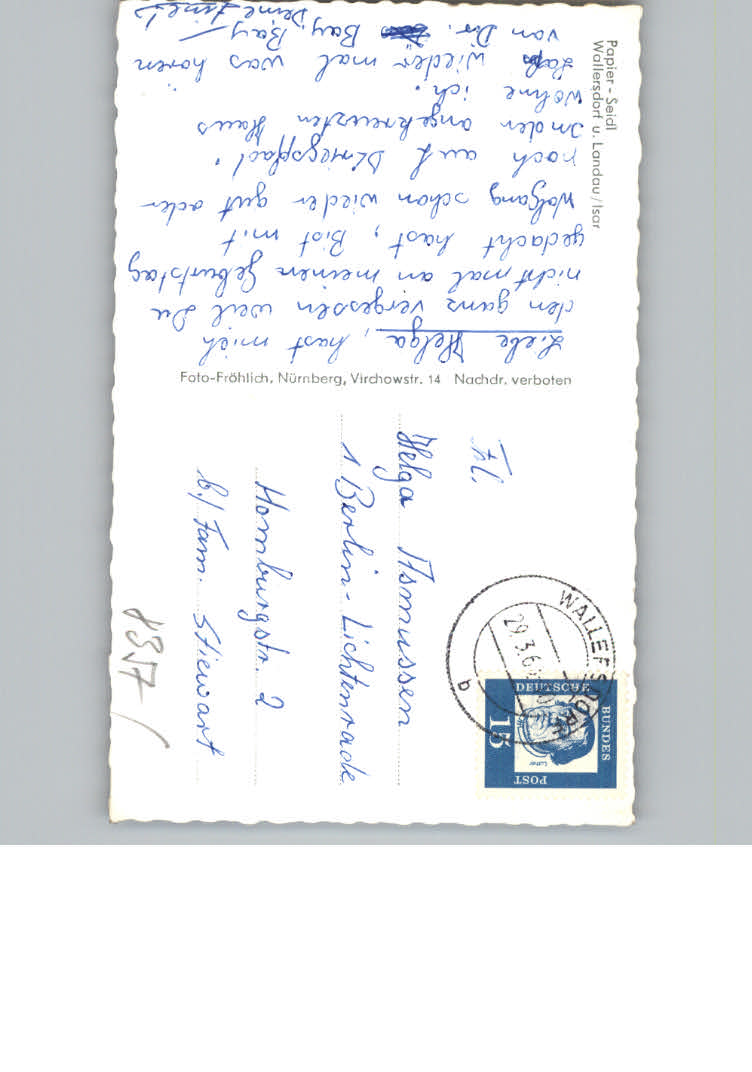 Liebe Helga, hast mich
den ganz vergessen weil Du
nicht mal an meinen Geburtstag
gedacht hast, Bist mit
Wolfgang schon wieder gut oder
noch auf Kriegspfad!
In den angekreuzten Haus
wohne ich.
Laß wieder mal was hören
von Dir. Bay, Bay
Deine
Papier - Seidl
Wallersdorf u. Landau/Isar
Foto-Fröhlich, Nürnberg, Virchowstr. 14 Nachdr. verboten
Frl.
Helga Asmussen
1 Berlin - Lichtenrade
Homburgstr. 2
b/ Fam. Stiewart
WALLERSDORF
29.3.6
b
DEUTSCHE
BUNDES
POST
15
Luther
837